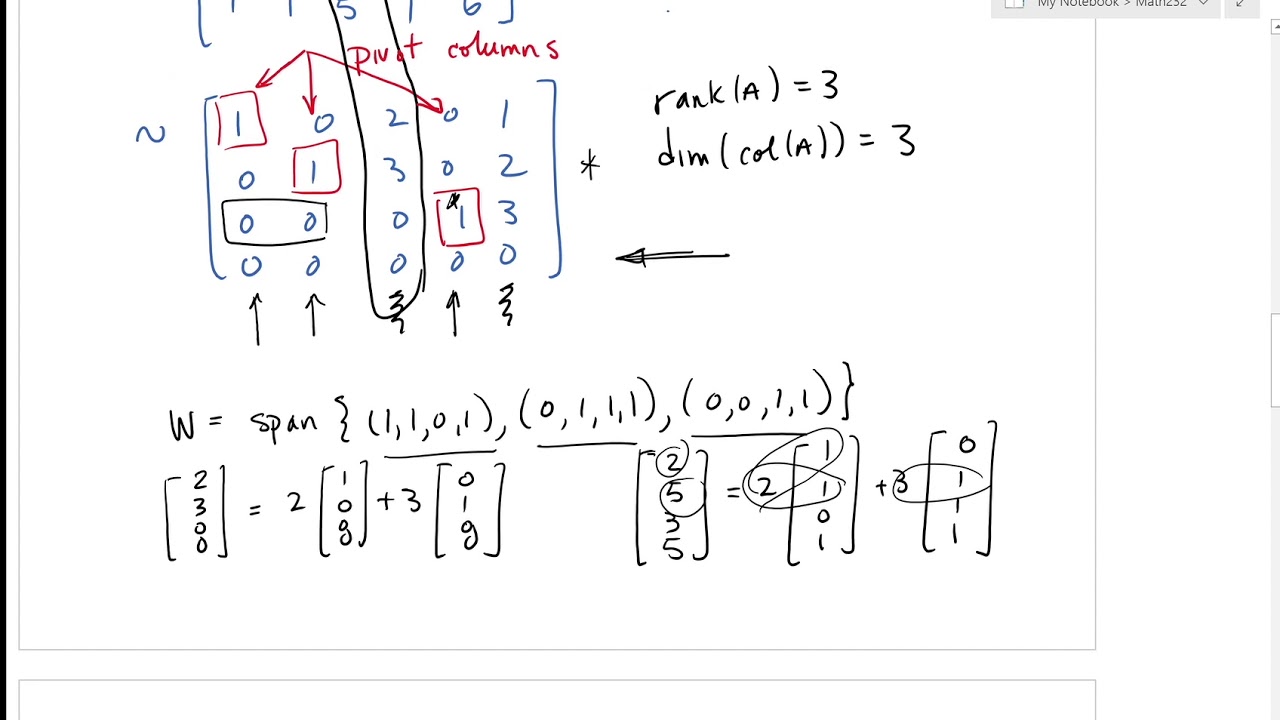 My Notebook > Math232
1 1 5 1 6
pivot columns
~ [ 1 0 2 0 1 ]
0 1 3 0 2 *
0 0 0 1 3
0 0 0 0 0
rank(A) = 3
dim(col(A)) = 3
W = span { (1,1,0,1), (0,1,1,1), (0,0,1,1) }
[ 2 3 0 0 ] = 2 [ 1 0 0 ] + 3 [ 0 1 0 ]
[ 2 5 3 5 ] = 2 [ 1 1 0 1 ] + 3 [ 0 1 1 1 ]